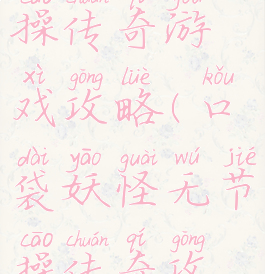 cāo chuán qí yóu
操传奇游
xì gōng lüè kǒu
戏攻略(口
dài yāo guài wú jié
袋妖怪无节
cāo chuán qí gōng
操传奇攻